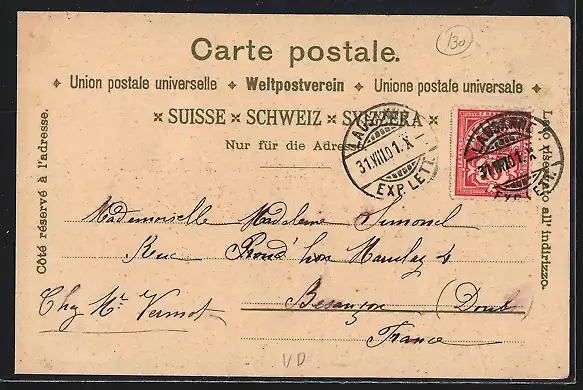 130
Carte postale.
Union postale universelle ✦ Weltpostverein ✦ Unione postale universale
SUISSE × SCHWEIZ × SVIZZERA
Nur für die Adresse
Côté réservé à l'adresse.
Lato riservato all' indirizzo.
LAUSANNE
31.VIII.01.X
EXP. LETT.
LAUSANNE
31.VIII.01.X
EXP. LETT.
Mademoiselle Madeleine Simonel
Rue Rond
Chez Mr Vernot
Besançon (Doubs)
France
VD